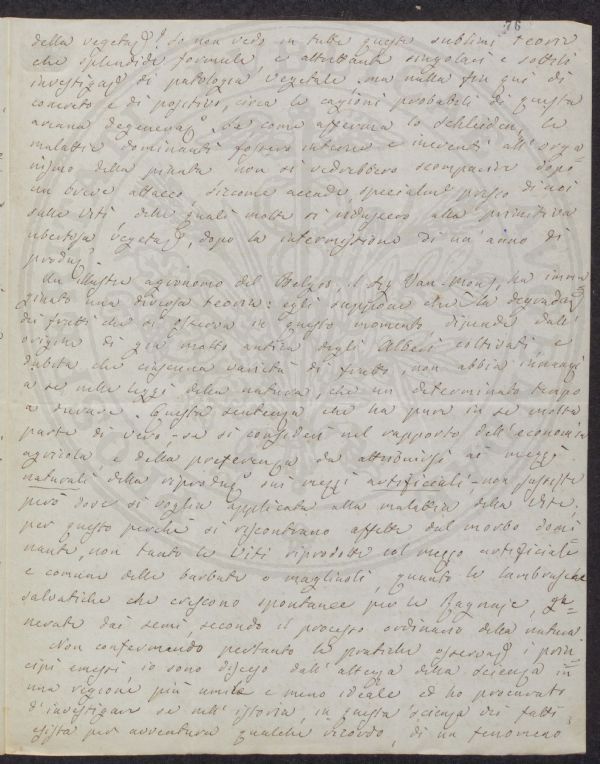 76
della vegetaz.e? Io non vedo in tutte queste sublimi teorie
che splendide formule, e altrettante singolari e sottili
investigaz.i di patologia vegetale ma nulla fin qui di
concreto, e di positivo, circa le cagioni probabili di questa
arcana degeneraz.e. Se come afferma lo Schleiden, le
malattie dominanti fossero interne e inerenti all'orga
nismo della pianta non si vedrebbero scomparire dopo
un breve attacco, siccome accade, specialm.e presso di noi
sulle Viti delle quali molte si ridussero alla primitiva
ubertosa vegetaz.e, dopo la intermissione di un anno di
produz.e
Un illustre agronomo del Belgio, il Sig. Van-Mons, ha imma
ginato una diversa teoria: egli suppone che la degradaz.e
dei frutti che si osserva in questo momento, dipenda dall'
origine di già molto antica degli Alberi coltivati, e
dubita che ciascuna varietà di frutto, non abbia innanzi
a se nelle leggi della natura, che un determinato tempo
a durare. Questa sentenza che ha pure in se molta
parte di vero, se si consideri nel rapporto dell'economia
agricola, e della preferenza da attribuirsi ai mezzi
naturali della riproduz.e sui mezzi artificiali, non sussiste
però dove si voglia applicata alla malattia della Vite,
per questo perchè si riscontrano affette dal morbo domi
nante, non tanto le Viti riprodotte col mezzo artificiale
e comune delle barbate o magliuoli, quanto le lambrusche
salvatiche che crescono spontanee per le , ge=
nerate dai semi, secondo il processo ordinario della natura
Non confermando pertanto la pratica osservaz.e i prin
cipi emessi, io sono disceso dall'altezza della scienza in
una regione più umile e meno ideale ed ho procurato
d'investigare se nell'istoria, in questa scienza dei fatti,
esista per avventura qualche ricordo, di un fenomeno